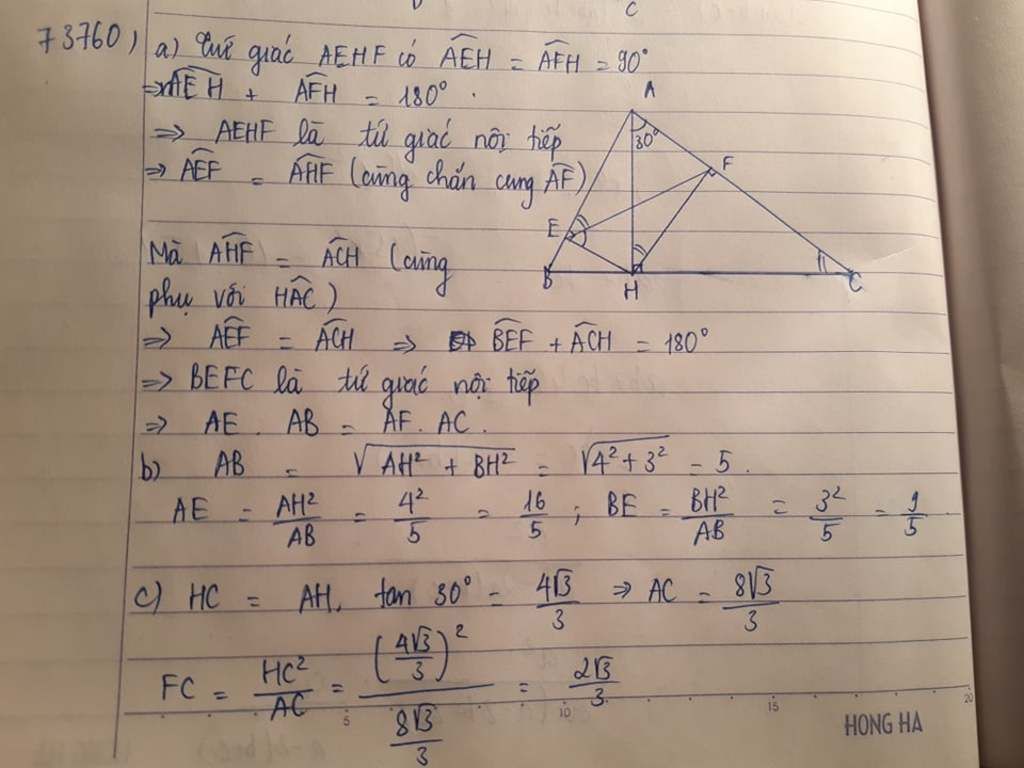 C
73760)
a) Tứ giác AEHF có \widehat{AEH} = \widehat{AFH} = 90°
⇒ \widehat{AEH} + \widehat{AFH} = 180°.
⇒ AEHF là tứ giác nội tiếp
⇒ \widehat{AEF} = \widehat{AHF} (cùng chắn cung \widehat{AF})
Mà \widehat{AHF} = \widehat{ACH} (cùng
phụ với \widehat{HAC})
⇒ \widehat{AEF} = \widehat{ACH} ⇒ \widehat{BEF} + \widehat{ACH} = 180°
⇒ BEFC là tứ giác nội tiếp
⇒ AE . AB = AF . AC.
A
30°
F
E
B
H
C
b) AB = \sqrt{AH² + BH²} = \sqrt{4² + 3²} = 5.
AE = \frac{AH²}{AB} = \frac{4²}{5} = \frac{16}{5} ; BE = \frac{BH²}{AB} = \frac{3²}{5} = \frac{9}{5}
c) HC = AH. tan 30° = \frac{4√3}{3} ⇒ AC = \frac{8√3}{3}
FC = \frac{HC²}{AC} = \frac{(\frac{4√3}{3})²}{\frac{8√3}{3}} = \frac{2√3}{3}
5 10 15 20
HONG HA